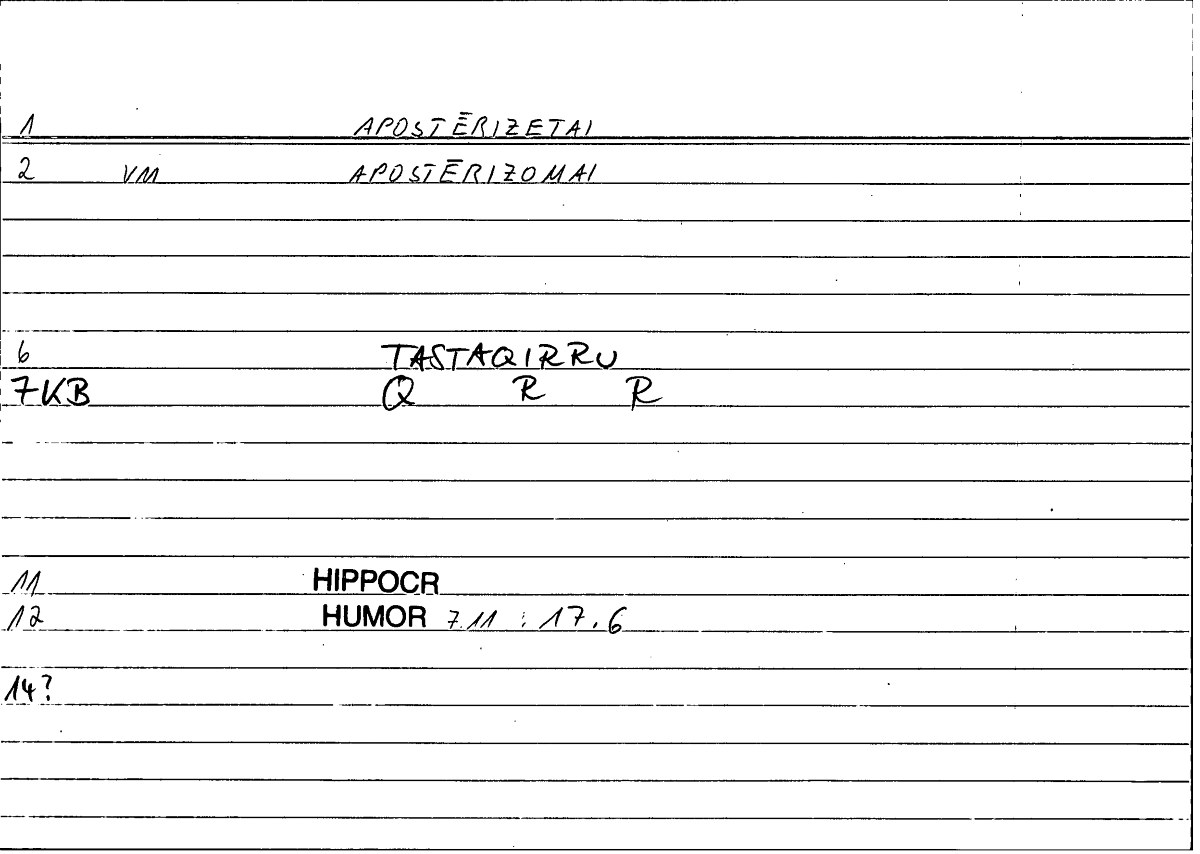 1 APOSTĒRIZETAI
2 VM APOSTĒRIZOMAI
6 TASTAQIRRU
7KB Q R R
11 HIPPOCR
12 HUMOR 7.11 : 17.6
14?